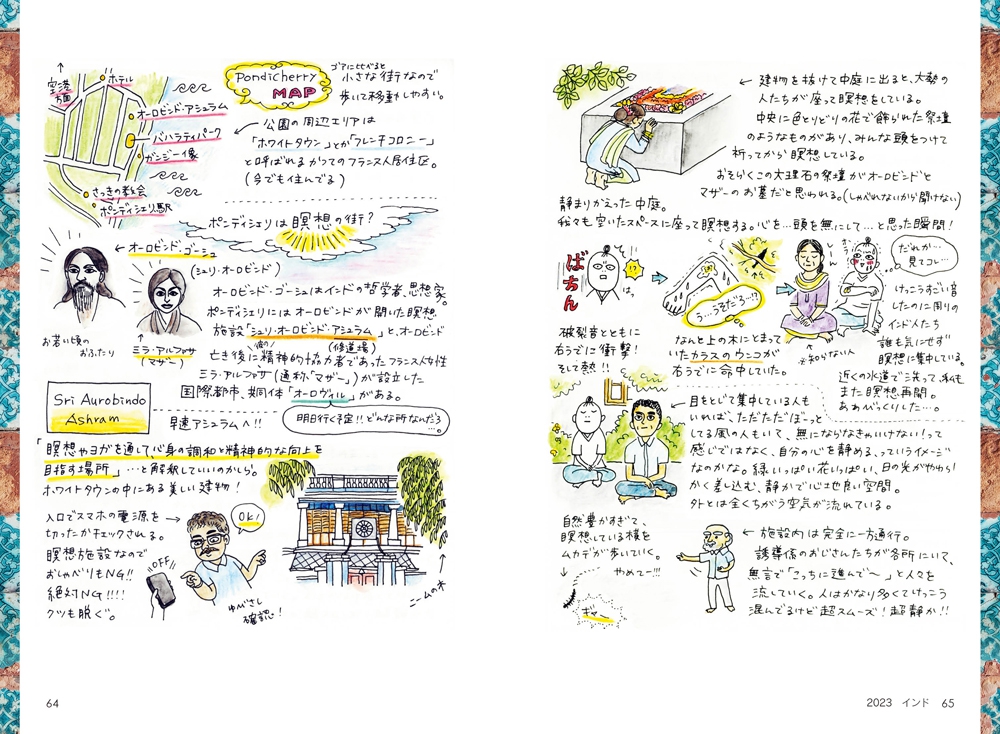 空港
方面
ホテル
オーロビンド・アシュラム
ババラティパーク
ガンジー像
さっきの教会
ポンディシェリ駅
Pondicherry
MAP
ゴアに比べると
小さな街なので
歩いて移動しやすい。
← 公園の周辺エリアは
「ホワイトタウン」とか「フレンチコロニー」
と呼ばれるかつてのフランス人居住区。
(今でも住んでる)
ポンディシェリは瞑想の街?
← オーロビンド・ゴーシュ
(シュリ・オーロビンド)
お若い頃の
おふたり
ミラ・アルファサ
(マザー)
オーロビンド・ゴーシュはインドの哲学者、思想家。
ポンディシェリにはオーロビンドが開いた瞑想
施設「シュリ・オーロビンド・アシュラム」と、オーロビンド
(修道場)
亡き後に彼の精神的協力者であったフランス人女性
ミラ・アルファサ(通称「マザー」)が設立した
国際都市、共同体「オーロヴィル」がある。
明日行く予定!!どんな所なんだろ
…。
Sri Aurobindo
Ashram
早速アシュラムへ!!
「瞑想やヨガを通して心身の調和と精神的な向上を
目指す場所」…と解釈していいのかしら。
ホワイトタウンの中にある美しい建物!
入口でスマホの電源を →
切ったかチェックされる。
瞑想施設なので
おしゃべりもNG!!
絶対NG!!!!
クツも脱ぐ。
OK!
OFF
ゆびさし
確認!
ニームの木
64
← 建物を抜けて中庭に出ると、大勢の
人たちが座って瞑想をしている。
中央に色とりどりの花で飾られた祭壇
のようなものがあり、みんな頭をつけて
祈ってから瞑想している。
おそらくこの大理石の祭壇がオーロビンドと
マザーのお墓だと思われる。(しゃべれないから聞けない)
静まりかえった中庭。
我々も空いたスペースに座って瞑想する。心を…頭を無にして…と思った瞬間!
ばちん
!?
はっ
う…うそだろ…!?
だれか…
見てコレ…
破裂音とともに
右うでに衝撃!
そして熱!!
なんと上の木にとまって
いたカラスのウンコが
右うでに命中していた。
※知らない人
けっこうすごい音
したのに周りの
インド人たち
誰も気にせず
瞑想に集中している。
近くの水道で洗って、私も
また瞑想再開。
ああびっくりした…。
← 目をとじて集中している人も
いれば、ただただぼーっと
してる風の人もいて、無にならなきゃいけない!って
感じではなく、自分の心を静める、っていうイメージ
なのかな。緑いっぱい花いっぱい、日の光がやわら
かく差し込む、静かで心地良い空間。
外とは全くちがう空気が流れている。
自然豊かすぎて、
瞑想している横を
ムカデが歩いていく。
やめてー!!!
ギャー
← 施設内は完全に一方通行。
誘導係のおじさんたちが各所にいて、
無言で「こっちに進んで〜」と人々を
流していく。人はかなり多くてけっこう
混んでるけど超スムーズ!超静か!!
2023 インド 65